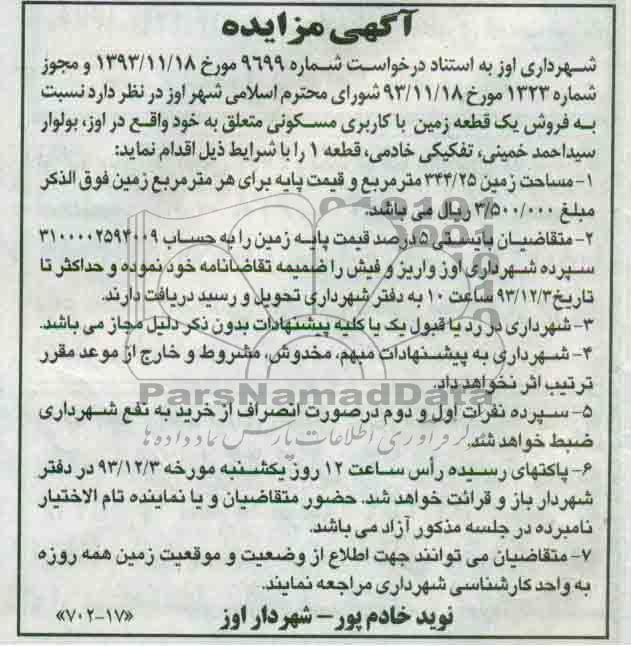 آگهی مزایده
شهرداری اوز به استناد درخواست شماره ۹۶۹۹ مورخ ۱۳۹۳/۱۱/۱۸ و مجوز
شماره ۱۳۲۳ مورخ ۹۳/۱۱/۱۸ شورای محترم اسلامی شهر اوز در نظر دارد نسبت
به فروش یک قطعه زمین با کاربری مسکونی متعلق به خود واقع در اوز، بولوار
سیداحمد خمینی، تفکیکی خادمی، قطعه ۱ را با شرایط ذیل اقدام نماید:
۱- مساحت زمین ۳۴۴/۲۵ مترمربع و قیمت پایه برای هر مترمربع زمین فوق الذکر
مبلغ ۳/۵۰۰/۰۰۰ ریال می باشد.
۲- متقاضیان بایستی ۵ درصد قیمت پایه زمین را به حساب ۳۱۰۰۰۰۲۵۹۴۰۰۹
سپرده شهرداری اوز واریز و فیش را ضمیمه تقاضانامه خود نموده و حداکثر تا
تاریخ ۹۳/۱۲/۳ ساعت ۱۰ به دفتر شهرداری تحویل و رسید دریافت دارند.
۳- شهرداری در رد یا قبول یک یا کلیه پیشنهادات بدون ذکر دلیل مجاز می باشد.
۴- شهرداری به پیشنهادات مبهم، مخدوش، مشروط و خارج از موعد مقرر
ترتیب اثر نخواهد داد.
ParsNamadData
۵- سپرده نفرات اول و دوم درصورت انصراف از خرید به نفع شهرداری
گرفراوری اطلاعات پارس نماد داده ها
ضبط خواهد شد.
۶- پاکتهای رسیده رأس ساعت ۱۲ روز یکشنبه مورخه ۹۳/۱۲/۳ در دفتر
شهردار باز و قرائت خواهد شد. حضور متقاضیان و یا نماینده تام الاختیار
نامبرده در جلسه مذکور آزاد می باشد.
۷- متقاضیان می توانند جهت اطلاع از وضعیت و موقعیت زمین همه روزه
به واحد کارشناسی شهرداری مراجعه نمایند.
نوید خادم پور - شهردار اوز
«۷۰۲-۱۷»